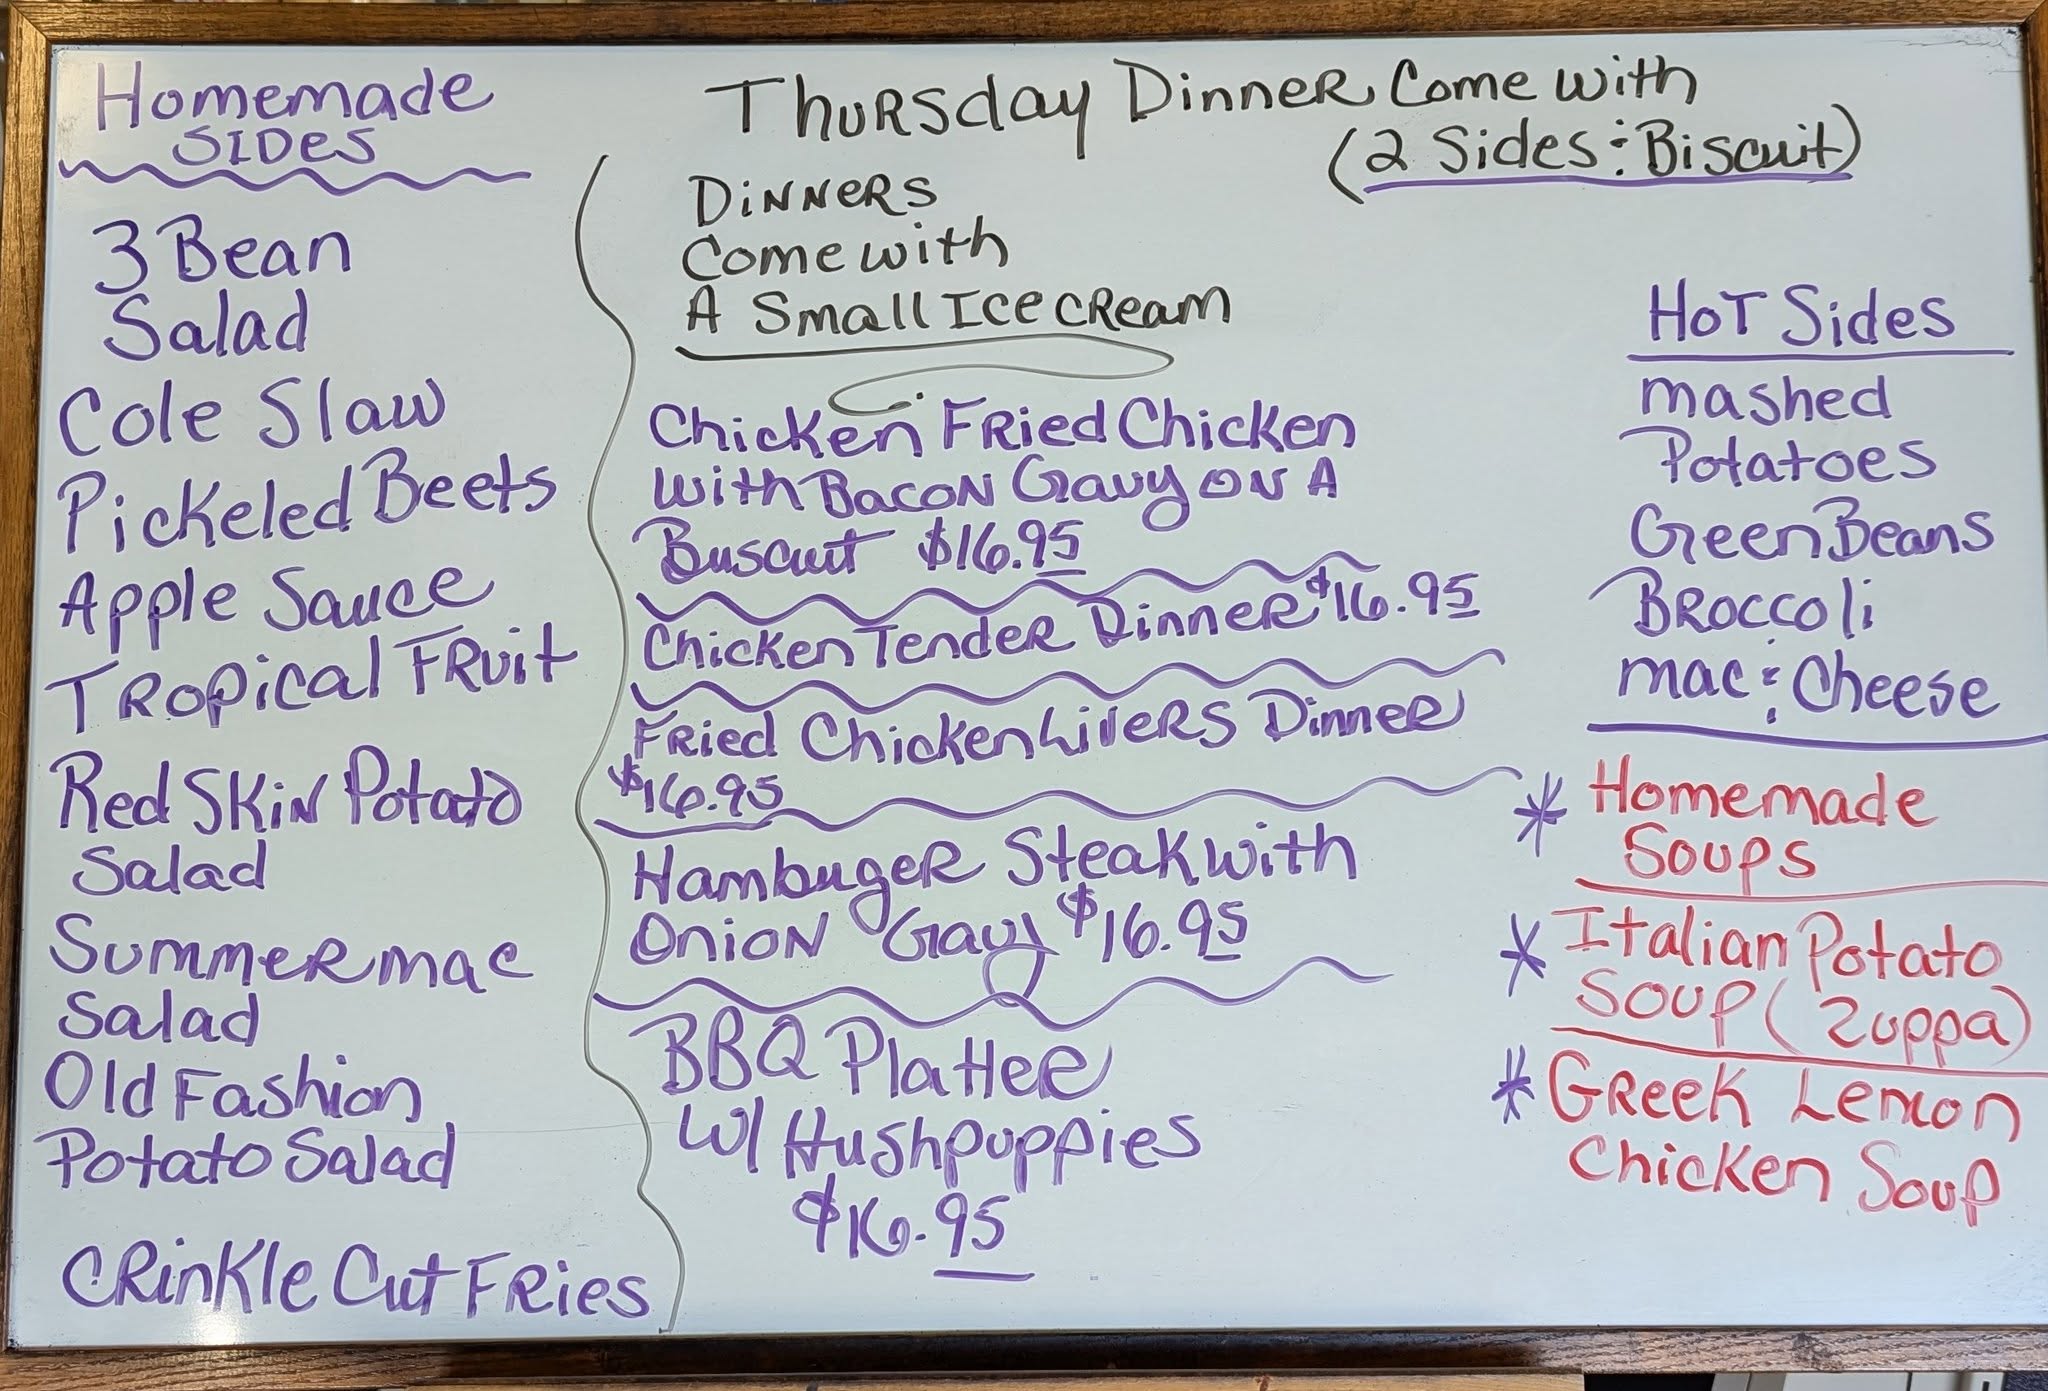 Homemade
SIDES
3 Bean
Salad
Cole Slaw
Pickeled Beets
Apple Sauce
Tropical Fruit
Red Skin Potato
Salad
Summer mac
Salad
Old Fashion
Potato Salad
Crinkle Cut Fries
Thursday Dinner Come with
(2 Sides & Biscuit)
Dinners
Come with
A Small Ice cream
Chicken Fried Chicken
with Bacon Gravy on A
Buscuit $16.95
Chicken Tender Dinner $16.95
Fried Chicken Livers Dinner
$16.95
Hambuger Steak with
Onion Gravy $16.95
BBQ Platter
W/ Hushpuppies
$16.95
Hot Sides
mashed
Potatoes
Green Beans
Broccoli
mac & Cheese
* Homemade
Soups
* Italian Potato
Soup (Zuppa)
* Greek Lemon
Chicken Soup